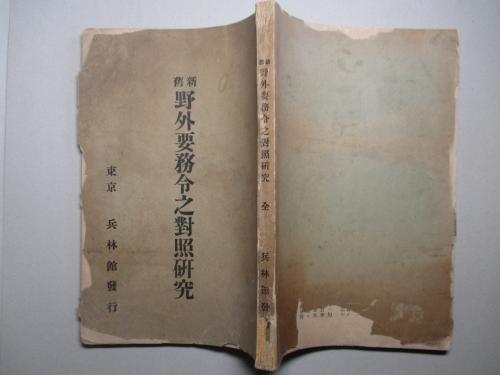 新舊 野外要務令之對照研究
東京 兵林館發行
新舊 野外要務令之對照研究 全 兵林館發